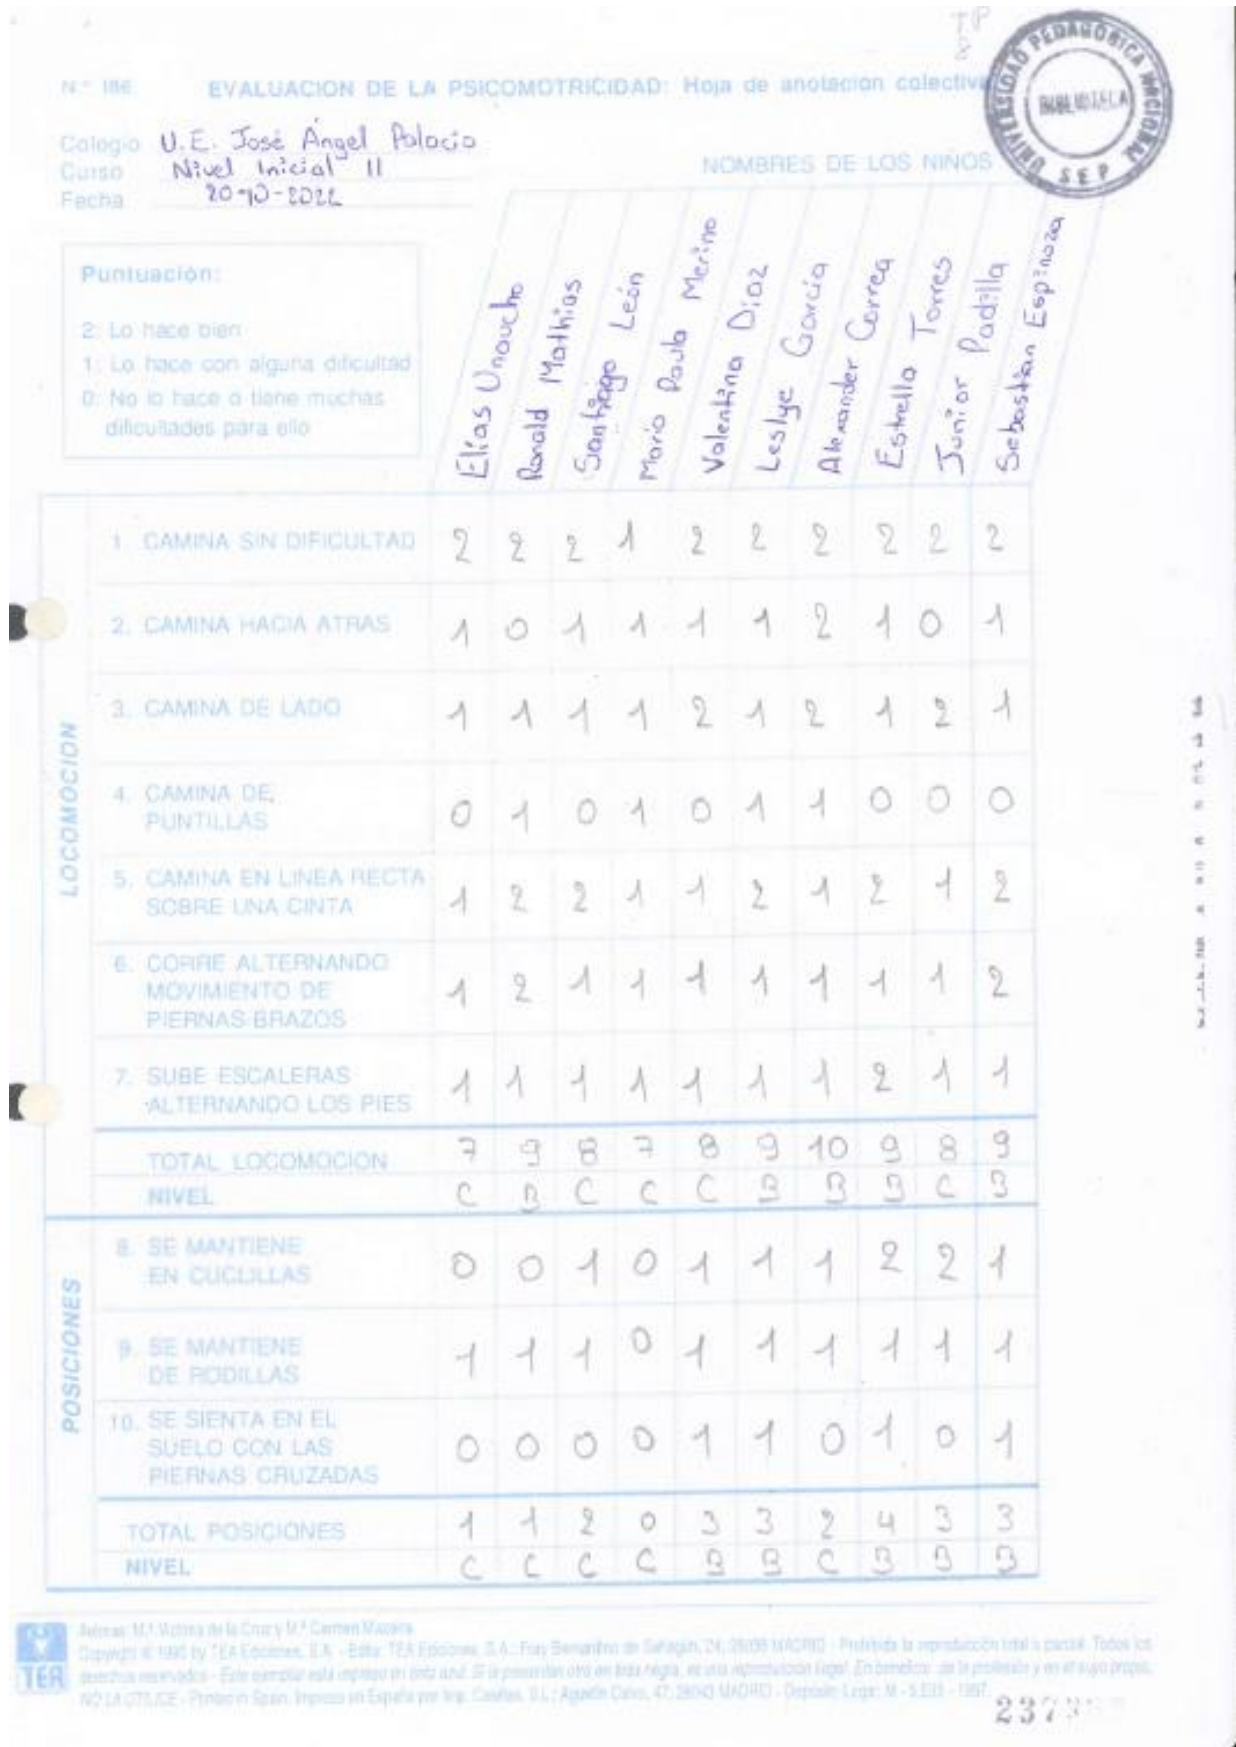 N.º 186 EVALUACION DE LA PSICOMOTRICIDAD: Hoja de anotación colectiva
UNIVERSIDAD PEDAGOGICA NACIONAL
BIBLIOTECA
SEP
Colegio U.E. José Ángel Palacio
Curso Nivel Inicial II
Fecha 20-10-2022
NOMBRES DE LOS NIÑOS
Puntuación:
2: Lo hace bien
1: Lo hace con alguna dificultad
0: No lo hace o tiene muchas
dificultades para ello
Elías Unaucho
Ronald Mathias
Santiago León
María Paula Merino
Valentina Díaz
Leslye García
Alexander Correa
Estrella Torres
Junior Padilla
Sebastián Espinoza
LOCOMOCION
1. CAMINA SIN DIFICULTAD 2 2 2 1 2 2 2 2 2 2
2. CAMINA HACIA ATRAS 1 0 1 1 1 1 2 1 0 1
3. CAMINA DE LADO 1 1 1 1 2 1 2 1 2 1
4. CAMINA DE
PUNTILLAS 0 1 0 1 0 1 1 0 0 0
5. CAMINA EN LINEA RECTA
SOBRE UNA CINTA 1 2 2 1 1 2 1 2 1 2
6. CORRE ALTERNANDO
MOVIMIENTO DE
PIERNAS-BRAZOS 1 2 1 1 1 1 1 1 1 2
7. SUBE ESCALERAS
ALTERNANDO LOS PIES 1 1 1 1 1 1 1 2 1 1
TOTAL LOCOMOCION 7 9 8 7 8 9 10 9 8 9
NIVEL C B C C C B B B C B
POSICIONES
8. SE MANTIENE
EN CUCLILLAS 0 0 1 0 1 1 1 2 2 1
9. SE MANTIENE
DE RODILLAS 1 1 1 0 1 1 1 1 1 1
10. SE SIENTA EN EL
SUELO CON LAS
PIERNAS CRUZADAS 0 0 0 0 1 1 0 1 0 1
TOTAL POSICIONES 1 1 2 0 3 3 2 4 3 3
NIVEL C C C C B B C B B B
TEA
Autoras: M.ª Victoria de la Cruz y M.ª Carmen Mazaira
Copyright © 1990 by TEA Ediciones, S.A. - Edita: TEA Ediciones, S.A.; Fray Bernardino de Sahagún, 24; 28036 MADRID - Prohibida la reproducción total o parcial. Todos los
derechos reservados - Este ejemplar está impreso en tinta azul. Si le presentan otro en tinta negra, es una reproducción ilegal. En beneficio de la profesión y en el suyo propio,
NO LA UTILICE - Printed in Spain. Impreso en España por Imp. Casillas, S.L.; Agustín Calvo, 47; 28043 MADRID - Depósito Legal: M -